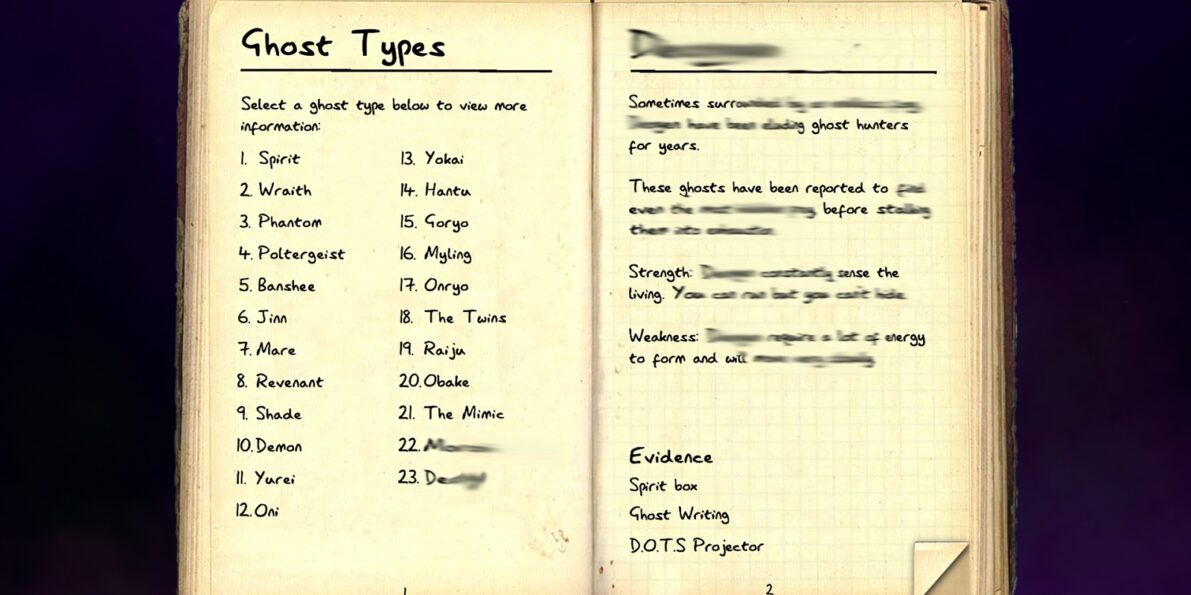 Ghost Types
Select a ghost type below to view more
information:
1. Spirit
2. Wraith
3. Phantom
4. Poltergeist
5. Banshee
6. Jinn
7. Mare
8. Revenant
9. Shade
10. Demon
11. Yurei
12. Oni
13. Yokai
14. Hantu
15. Goryo
16. Myling
17. Onryo
18. The Twins
19. Raiju
20. Obake
21. The Mimic
22.
23.
1
Sometimes
have been eluding ghost hunters
for years.
These ghosts have been reported to find
even the before stalking
them into
Strength: constantly sense the
living. You can run but you can't hide
Weakness: require a lot of energy
to form and will move very slowly
Evidence
Spirit box
Ghost Writing
D.O.T.S Projector
2